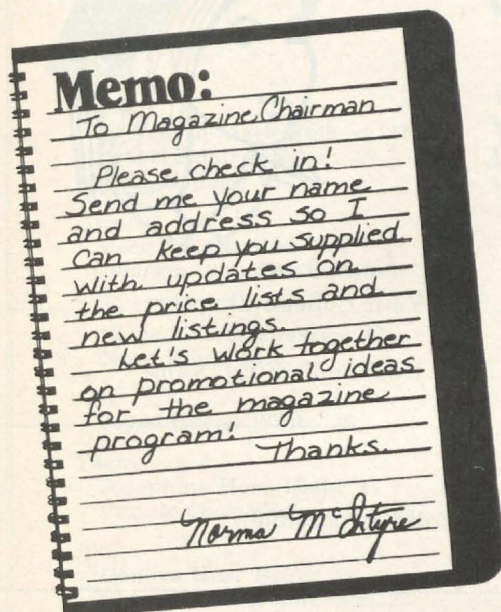 Memo:
To Magazine Chairman
Please check in!
Send me your name
and address so I
can keep you supplied
with updates on
the price lists and
new listings.
Let's work together
on promotional ideas
for the magazine
program!
Thanks.
Norma McIntyre